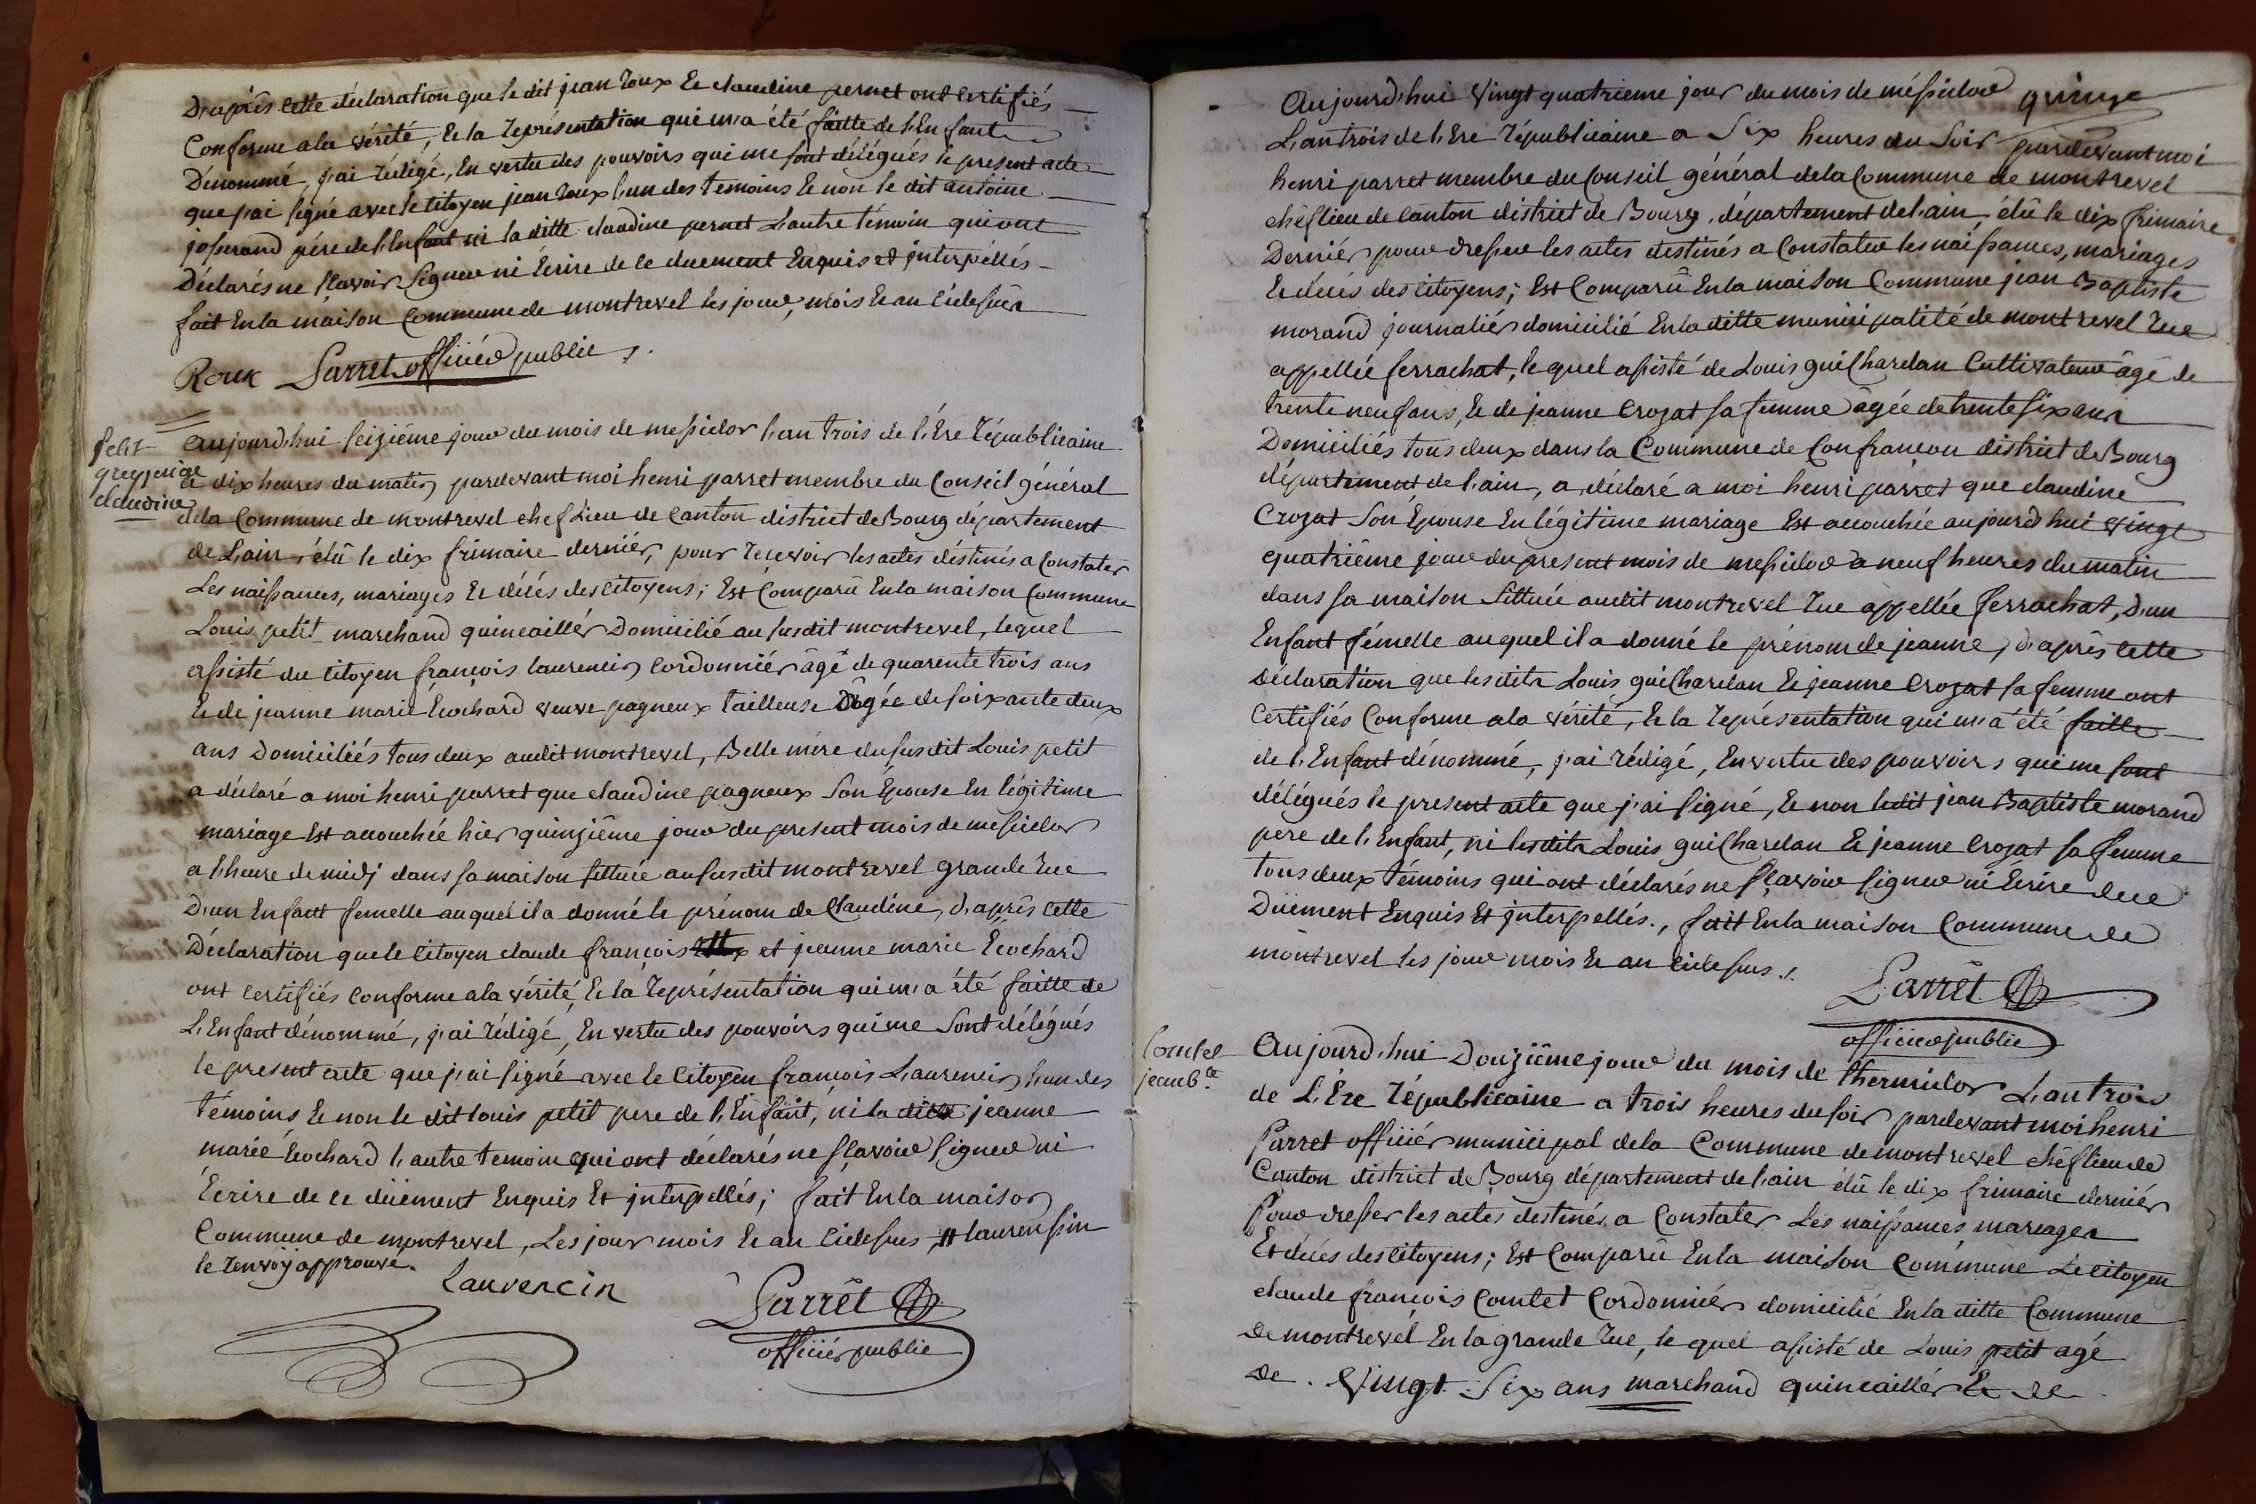 D'après cette déclaration que le dit jean Roux Et claudine pernet ont certifiés
Conforme a la vérité, Et la représentation qui m'a été faitte de l'Enfant
Dénommé, j'ai rédigé, En vertu des pouvoirs qui me sont délégués le present acte
que j'ai signé avec le citoyen jean roux l'un des temoins Et non le dit antoine
josserand père de l'Enfant ni la ditte claudine pernet l'autre témoin qui ont
Déclarés ne sçavoir Signer ni Ecrire de ce duement Enquis et jnterpéllés
fait En la maison Commune de montrevel les jour, mois Et an cidessus
Roux Parret officiér public
Petit
greyzeriat
claudine
Aujourd'hui seiziéme jour du mois de messidor l'an trois de l'Ere républicaine
a dix heures du matin pardevant moi henri parret membre du Conseil général
de la Commune de montrevel chef Lieu de Canton district de Bourg département
de L'ain élû le dix frimaire derniér, pour recevoir les actes déstinés a Constater
Les naissances, mariages Et décés des Citoyens; Est Comparû En la maison Commune
Louis petit marchand quincailler Domicilié au susdit montrevel, lequel
assisté du citoyen françois laurencin Cordonniér âgé de quarente trois ans
Et de jeanne marie Ecochard veuve pagneux tailleuse Agée de soixante deux
ans Domiciliés tous deux audit montrevel, Belle mère du susdit Louis petit
a déclaré a moi henri parret que claudine pagneux Son Epouse En légitime
mariage Est accouchée hier quinziême jour du present mois de messidor
a l'heure de midj dans sa maison sittuée au susdit montrevel grande rue
D'un Enfant femelle auquel il a donné le prénom de Claudine, d'après cette
Déclaration que le Citoyen claude françois et jeanne marie Ecochard
ont certifiés conforme a la vérité, Et la représentation qui m'a été faitte de
L'Enfant dénommé, j'ai rédigé, En vertu des pouvoirs qui me Sont délégués
le present acte que j'ai signé avec le Citoyen françois Laurencin l'un des
témoins Et non le dit louis petit pere de l'Enfant, ni la ditte jeanne
marie Ecochard l'autre temoin qui ont déclarés ne sçavoir signer ni
Ecrire de ce düement Enquis Et jnterpellés; fait En la maison
Commune de montrevel, Les jour mois Et an cidessus # laurensin
le renvoÿ approuvé.
Lauvencin Parrêt
officiér public
Aujourd'hui vingt quatrieme jour du mois de méssidor quinze
L'an trois de l'Ere républicaine a Six heures du Soir pardevant moi
henri parret membre du Conseil général de la Commune de montrevel
chéf lieu de Canton district de Bourg, département de l'ain, élû le dix frimaire
Derniér pour dresser les actes destinés a Constater les naissances, mariages
Et décés des citoyens; Est Comparû En la maison Commune jean Baptiste
morand journaliér domicilié En la ditte municipalité de montrevel rue
appellée ferrachat, le quel assisté de Louis guichardan Cultivateur âgé de
trente neuf ans, Et de jeanne Crozat sa femme âgée de trente six ans
Domiciliés tous deux dans la Commune de Confrançon district de Bourg
département de l'ain, a déclaré a moi henri parret que claudine
Crozat Son Epouse En légitime mariage Est accouchée aujourd'hui vingt
quatriême jour du present mois de messidor a neuf heures du matin
dans sa maison sittuée audit montrevel rue appellée ferrachat, d'un
Enfant fémelle auquel il a donné le prénom de jeanne, d'après cette
déclaration que lesdits Louis guichardan Et jeanne Crozat sa femme ont
certifiés Conforme a la vérité, Et la représentation qui m'a été faitte
de l'Enfant dénommé, j'ai rédigé, En vertu des pouvoirs qui me sont
délégués le present acte que j'ai signé, Et non ledit jean Baptiste morand
pere de l'Enfant, ni lesdits Louis guichardan Et jeanne Crozat sa femme
tous deux témoins qui ont déclarés ne sçavoir signer ni Ecrire de ce
Düement Enquis Et jnterpellés., fait En la maison Commune de
montrevel les jour mois Et an cidessus
Parrêt
officier public
Comtet
jean bte
Aujourd'hui Douziême jour du mois de thermidor L'an trois
de L'Ere républicaine a trois heures du soir pardevant moi henri
Parret officiér municipal de la Commune de montrevel chéf lieu de
Canton district de Bourg département de l'ain élû le dix frimaire derniér
Pour dresser les actes destinés a Constater Les naissances mariages
Et décés des citoyens; Est Comparû En la maison Commune Le citoyen
claude françois Comtet Cordonniér domicilié En la ditte Commune
de montrevel En la grande rue, le quel assisté de Louis petit agé
de vingt Six ans marchand quincaillér Et de